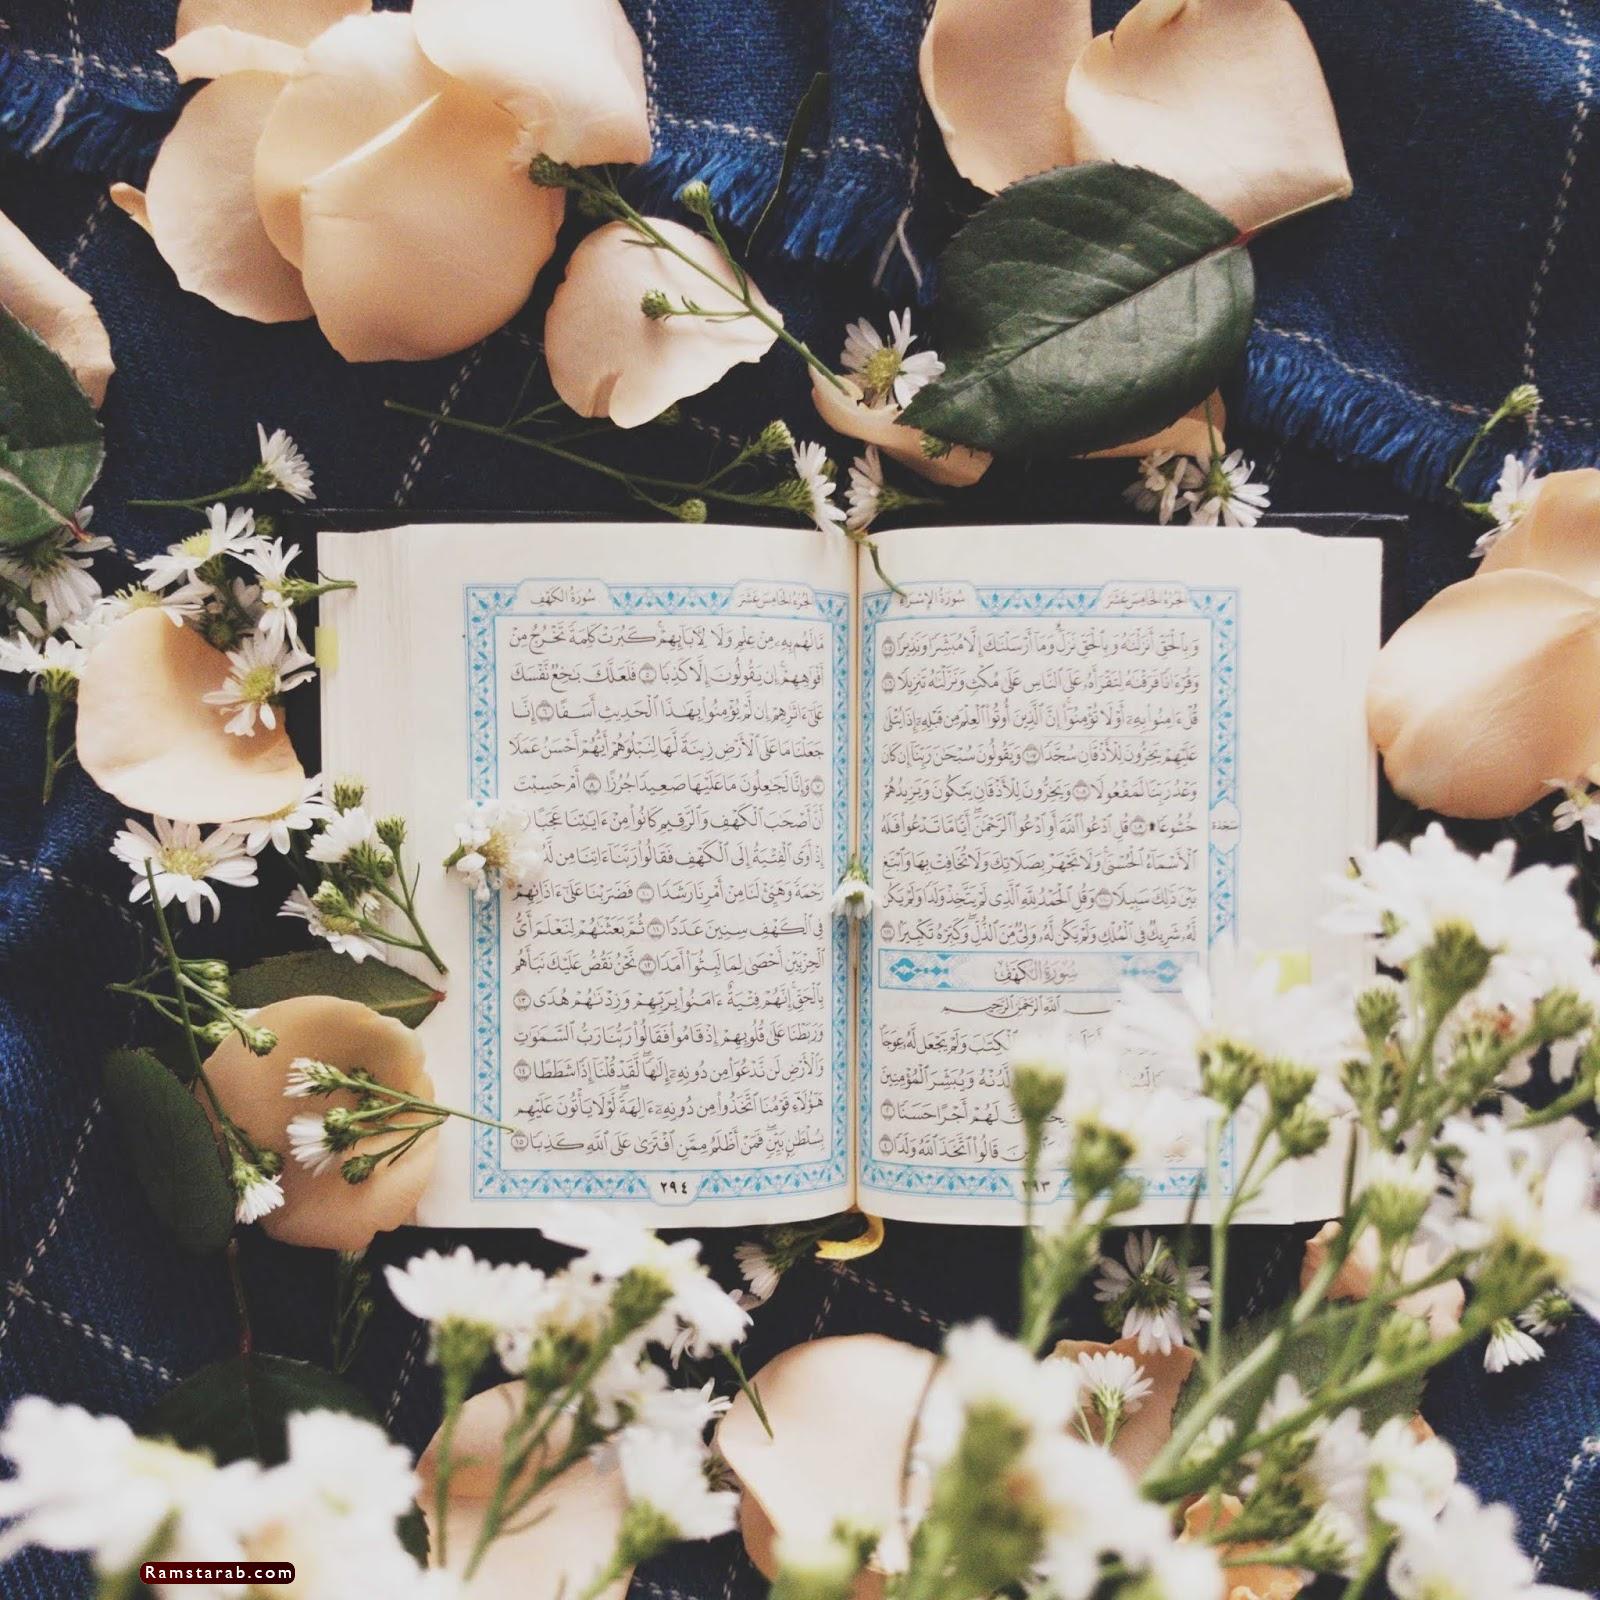 الجزء الخامس عشر
سورة الإسراء
وَبِٱلْحَقِّ أَنزَلْنَٰهُ وَبِٱلْحَقِّ نَزَلَ ۗ وَمَآ أَرْسَلْنَٰكَ إِلَّا مُبَشِّرًا وَنَذِيرًا ١٠٥
وَقُرْءَانًا فَرَقْنَٰهُ لِتَقْرَأَهُۥ عَلَى ٱلنَّاسِ عَلَىٰ مُكْثٍ وَنَزَّلْنَٰهُ تَنزِيلًا ١٠٦
قُلْ ءَامِنُوا۟ بِهِۦٓ أَوْ لَا تُؤْمِنُوٓا۟ ۚ إِنَّ ٱلَّذِينَ أُوتُوا۟ ٱلْعِلْمَ مِن قَبْلِهِۦٓ إِذَا يُتْلَىٰ
عَلَيْهِمْ يَخِرُّونَ لِلْأَذْقَانِ سُجَّدًا ١٠٧ وَيَقُولُونَ سُبْحَٰنَ رَبِّنَآ إِن كَانَ
وَعْدُ رَبِّنَا لَمَفْعُولًا ١٠٨ وَيَخِرُّونَ لِلْأَذْقَانِ يَبْكُونَ وَيَزِيدُهُمْ
خُشُوعًا ۩ ١٠٩ قُلِ ٱدْعُوا۟ ٱللَّهَ أَوِ ٱدْعُوا۟ ٱلرَّحْمَٰنَ ۖ أَيًّا مَّا تَدْعُوا۟ فَلَهُ
سجدة
ٱلْأَسْمَآءُ ٱلْحُسْنَىٰ ۚ وَلَا تَجْهَرْ بِصَلَاتِكَ وَلَا تُخَافِتْ بِهَا وَٱبْتَغِ
بَيْنَ ذَٰلِكَ سَبِيلًا ١١٠ وَقُلِ ٱلْحَمْدُ لِلَّهِ ٱلَّذِى لَمْ يَتَّخِذْ وَلَدًا وَلَمْ يَكُن
لَّهُۥ شَرِيكٌ فِى ٱلْمُلْكِ وَلَمْ يَكُن لَّهُۥ وَلِىٌّ مِّنَ ٱلذُّلِّ ۖ وَكَبِّرْهُ تَكْبِيرًۢا ١١١
سورة الكهف
ٱللَّهِ ٱلرَّحْمَٰنِ ٱلرَّحِيمِ
ٱلْكِتَٰبَ وَلَمْ يَجْعَل لَّهُۥ عِوَجَا
لَّدُنْهُ وَيُبَشِّرَ ٱلْمُؤْمِنِينَ
لَهُمْ أَجْرًا حَسَنًا ٢
قَالُوا۟ ٱتَّخَذَ ٱللَّهُ وَلَدًا ٤
٢٩٣
الجزء الخامس عشر
سورة الكهف
مَّا لَهُم بِهِۦ مِنْ عِلْمٍ وَلَا لِءَابَآئِهِمْ ۚ كَبُرَتْ كَلِمَةً تَخْرُجُ مِنْ
أَفْوَٰهِهِمْ ۚ إِن يَقُولُونَ إِلَّا كَذِبًا ٥ فَلَعَلَّكَ بَٰخِعٌ نَّفْسَكَ
عَلَىٰٓ ءَاثَٰرِهِمْ إِن لَّمْ يُؤْمِنُوا۟ بِهَٰذَا ٱلْحَدِيثِ أَسَفًا ٦ إِنَّا
جَعَلْنَا مَا عَلَى ٱلْأَرْضِ زِينَةً لَّهَا لِنَبْلُوَهُمْ أَيُّهُمْ أَحْسَنُ عَمَلًا
٧ وَإِنَّا لَجَٰعِلُونَ مَا عَلَيْهَا صَعِيدًا جُرُزًا ٨ أَمْ حَسِبْتَ
أَنَّ أَصْحَٰبَ ٱلْكَهْفِ وَٱلرَّقِيمِ كَانُوا۟ مِنْ ءَايَٰتِنَا عَجَبًا
إِذْ أَوَى ٱلْفِتْيَةُ إِلَى ٱلْكَهْفِ فَقَالُوا۟ رَبَّنَآ ءَاتِنَا مِن
رَحْمَةً وَهَيِّئْ لَنَا مِنْ أَمْرِنَا رَشَدًا ١٠ فَضَرَبْنَا عَلَىٰٓ ءَاذَانِهِمْ
فِى ٱلْكَهْفِ سِنِينَ عَدَدًا ١١ ثُمَّ بَعَثْنَٰهُمْ لِنَعْلَمَ أَىُّ
ٱلْحِزْبَيْنِ أَحْصَىٰ لِمَا لَبِثُوٓا۟ أَمَدًا ١٢ نَّحْنُ نَقُصُّ عَلَيْكَ نَبَأَهُم
بِٱلْحَقِّ ۚ إِنَّهُمْ فِتْيَةٌ ءَامَنُوا۟ بِرَبِّهِمْ وَزِدْنَٰهُمْ هُدًى ١٣
وَرَبَطْنَا عَلَىٰ قُلُوبِهِمْ إِذْ قَامُوا۟ فَقَالُوا۟ رَبُّنَا رَبُّ ٱلسَّمَٰوَٰتِ
وَٱلْأَرْضِ لَن نَّدْعُوَا۟ مِن دُونِهِۦٓ إِلَٰهًا ۖ لَّقَدْ قُلْنَآ إِذًا شَطَطًا ١٤
هَٰٓؤُلَآءِ قَوْمُنَا ٱتَّخَذُوا۟ مِن دُونِهِۦٓ ءَالِهَةً ۖ لَّوْلَا يَأْتُونَ عَلَيْهِم
بِسُلْطَٰنٍۭ بَيِّنٍ ۖ فَمَنْ أَظْلَمُ مِمَّنِ ٱفْتَرَىٰ عَلَى ٱللَّهِ كَذِبًا ١٥
٢٩٤
Ramstarab.com